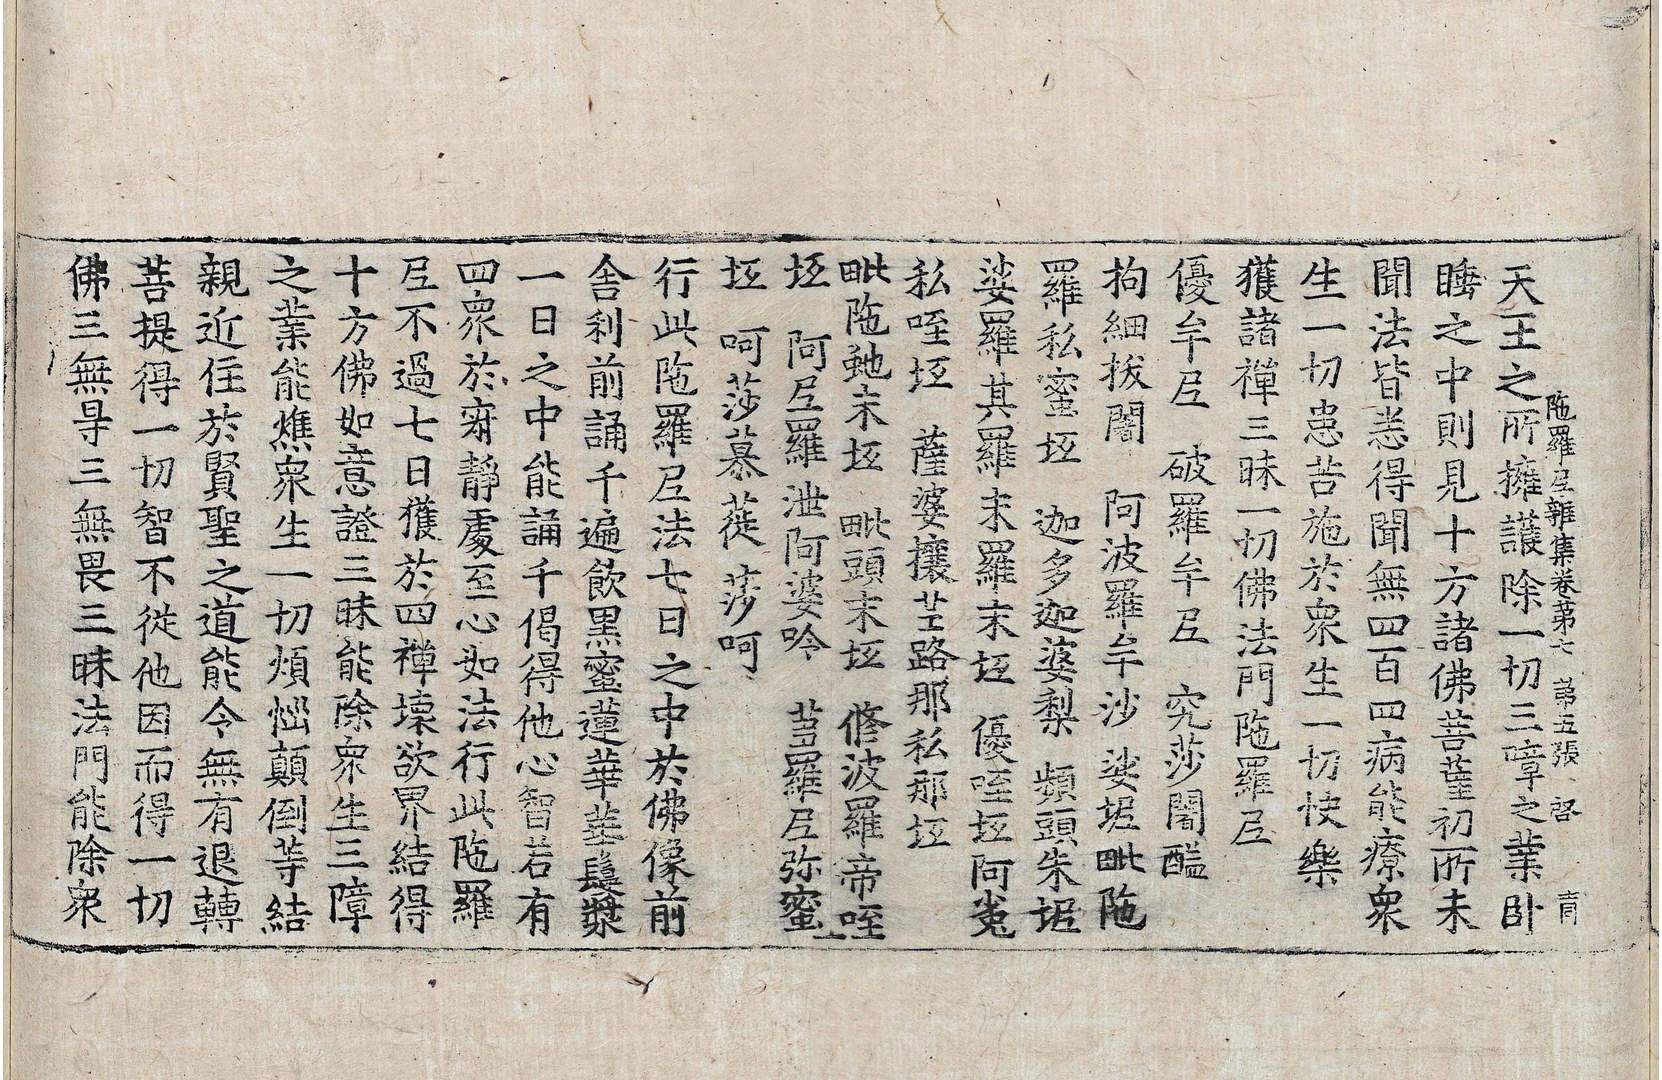 陁羅尼雜集卷苐七　苐五張　啓　育
天王之所擁護除一切三障之業卧
睡之中則見十方諸佛菩薩初所未
聞法皆悉得聞無四百四病能療衆
生一切患苦施於衆生一切快樂
獲諸禪三昧一切佛法門陁羅尼
優牟尼　破羅牟尼　究莎闍醯
拘細拔闍　阿波羅牟沙　娑坭毗陁
羅私蜜坘　迦多迦婆梨　頻頭朱坭
娑羅其羅末羅末坘　優咥坘阿㝹
私咥坘　薩婆攘 路那私那坘
毗陁虵末坘　毗頭末坘　修波羅帝咥
坘　阿尼羅泄阿婆吟　 羅尼弥蜜
坘　呵莎慕蓰　莎呵
行此陁羅尼法七日之中於佛像前
舍利前誦千遍飲黒蜜蓮華華鬚漿
一日之中能誦千偈得他心智若有
四衆於㝎靜處至心如法行此陁羅
尼不過七日獲於四禪壞欲界結得
十方佛如意證三昧能除衆生三障
之業能燋衆生一切煩惱顛倒等結
親近住於賢聖之道能令無有退轉
菩提得一切智不從他因而得一切
佛三無㝵三無畏三昧法門能除衆